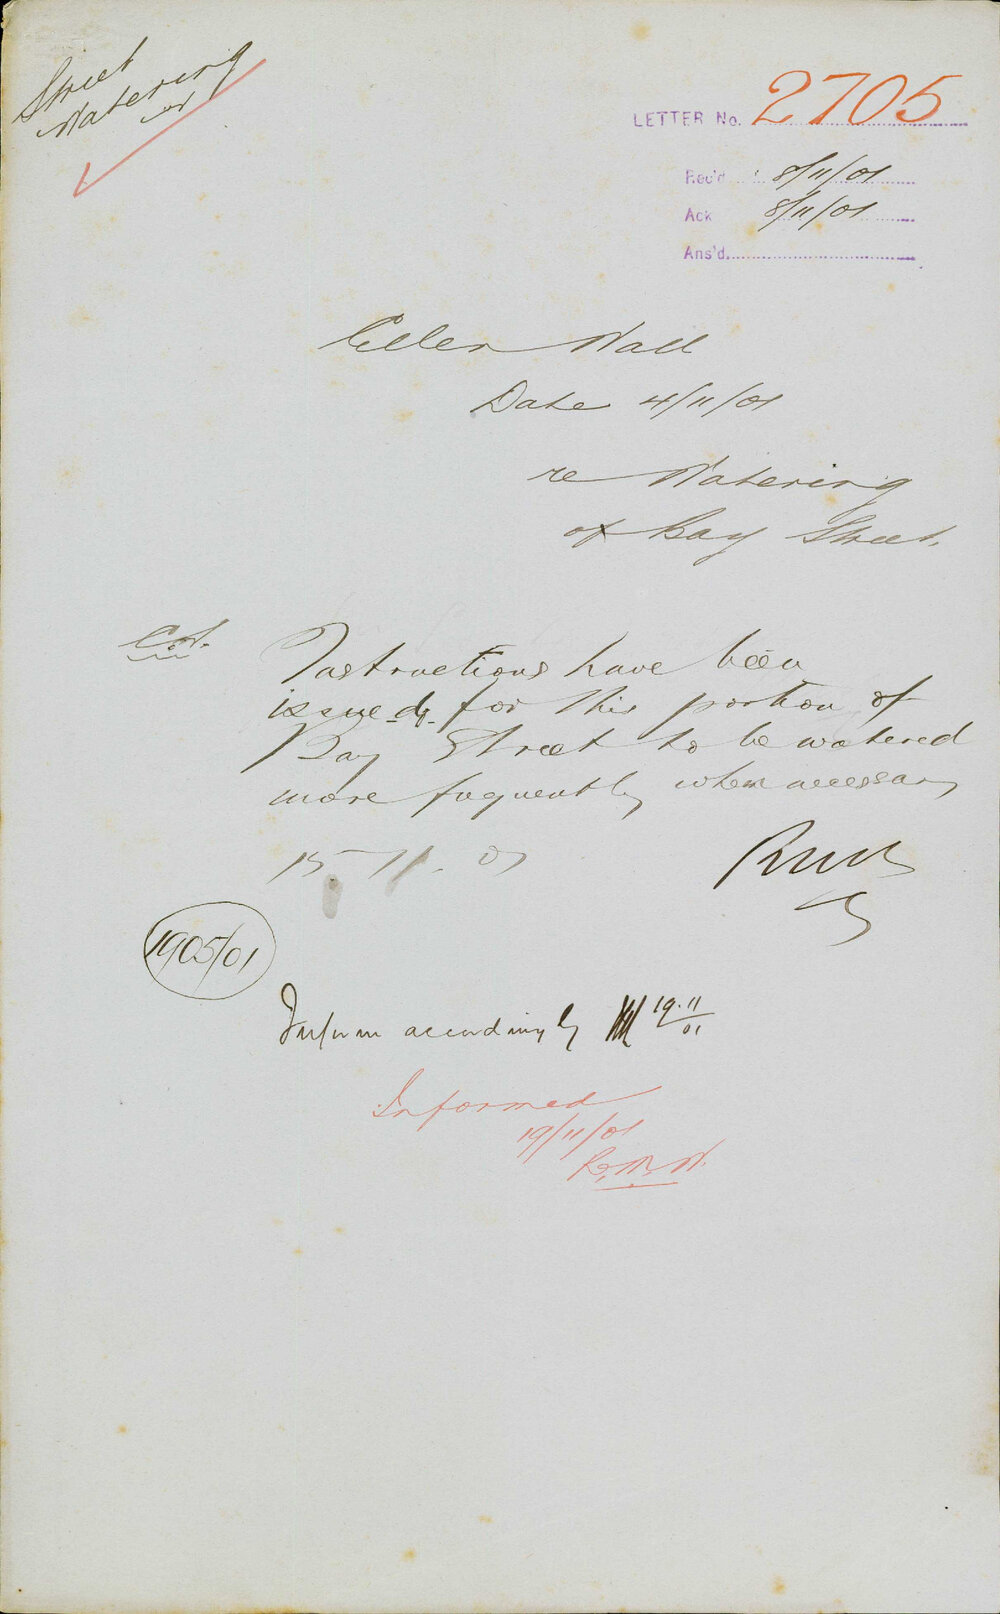 Street
Watering
LETTER No. 2705
Rec'd 8/11/01
Ack 8/11/01
Ans'd.
Ellen Wall
Date 4/11/01
re Watering
of Bay Street.
Instructions have been
issued for this portion of
Bay Street to be watered
more frequently when necessary
15-11.01
1905/01
Inform accordingly 19.11/01
Informed
19/11/01